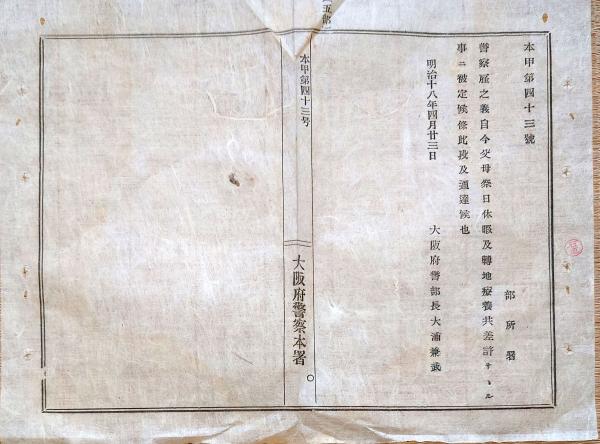 本甲第四十三號
部所署
警察屋之義自今父母祭日休暇及轉地療養共差許サヽル
事ニ被定候條此段及通達候也
明治十八年四月廿三日
大阪府警部長大浦兼武
本甲第四十三号
大阪府警察本署